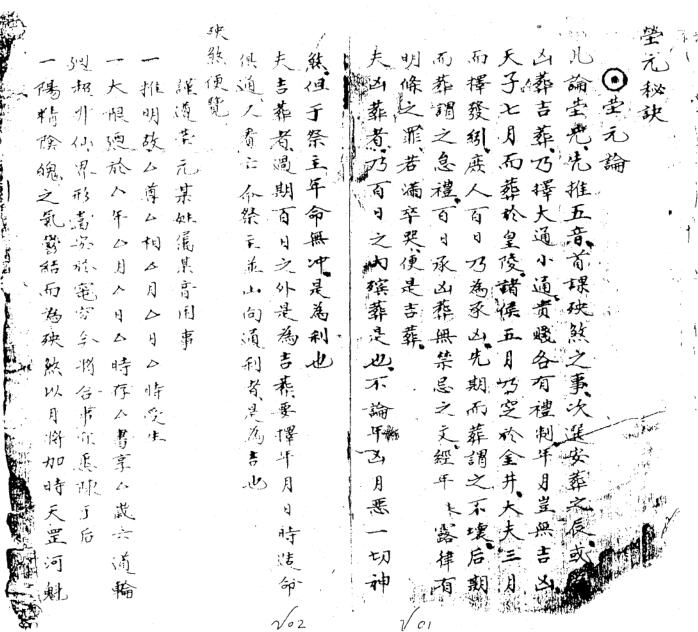 茔元秘訣
茔元論
凡論茔兇先推五音首課殃煞之事次選安葬之辰或
凶葬吉葬乃擇大通小通貴賤各有禮制年月豈無吉凶
天子七月而葬於皇陵諸侯五月乃窆於金井大夫三月
而擇發紖庶人百日乃為承凶先期而葬謂之不壞后期
而葬謂之怠禮百日承凶葬無禁忌之文經年露律有
明條之罪若滿卒哭便是吉葬
夫凶葬者乃百日之內殯葬是也不論年凶月惡一切神
煞但于祭主年命無冲是為利也
夫吉葬者過期百日之外是為吉葬要擇年月日時造命
俱通人看亡命祭主並山向通利者是為吉也
殃煞便覽
謹遵茔元某姓屬某音用事
一推明故厶尊厶相厶月厶日厶時受生
一大限廻於厶年厶月厶日厶時存厶壽享厶歲六道輪
廻超升仙界形當安於窀穸今將合事宜具陳于后
一陽精陰魄之氣鬱結而為殃煞以月將加時天罡河魁
V02
V01